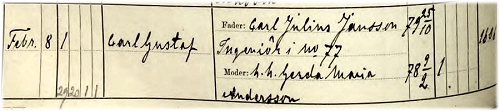 Fader: Carl Julius Jansson 79 25/10
Febr. 8 1 Carl Gustaf Ingeniör i no 77 1621
Moder: h. h. Gerda Maria 78 9/2 1.
2920 1 1 Andersson